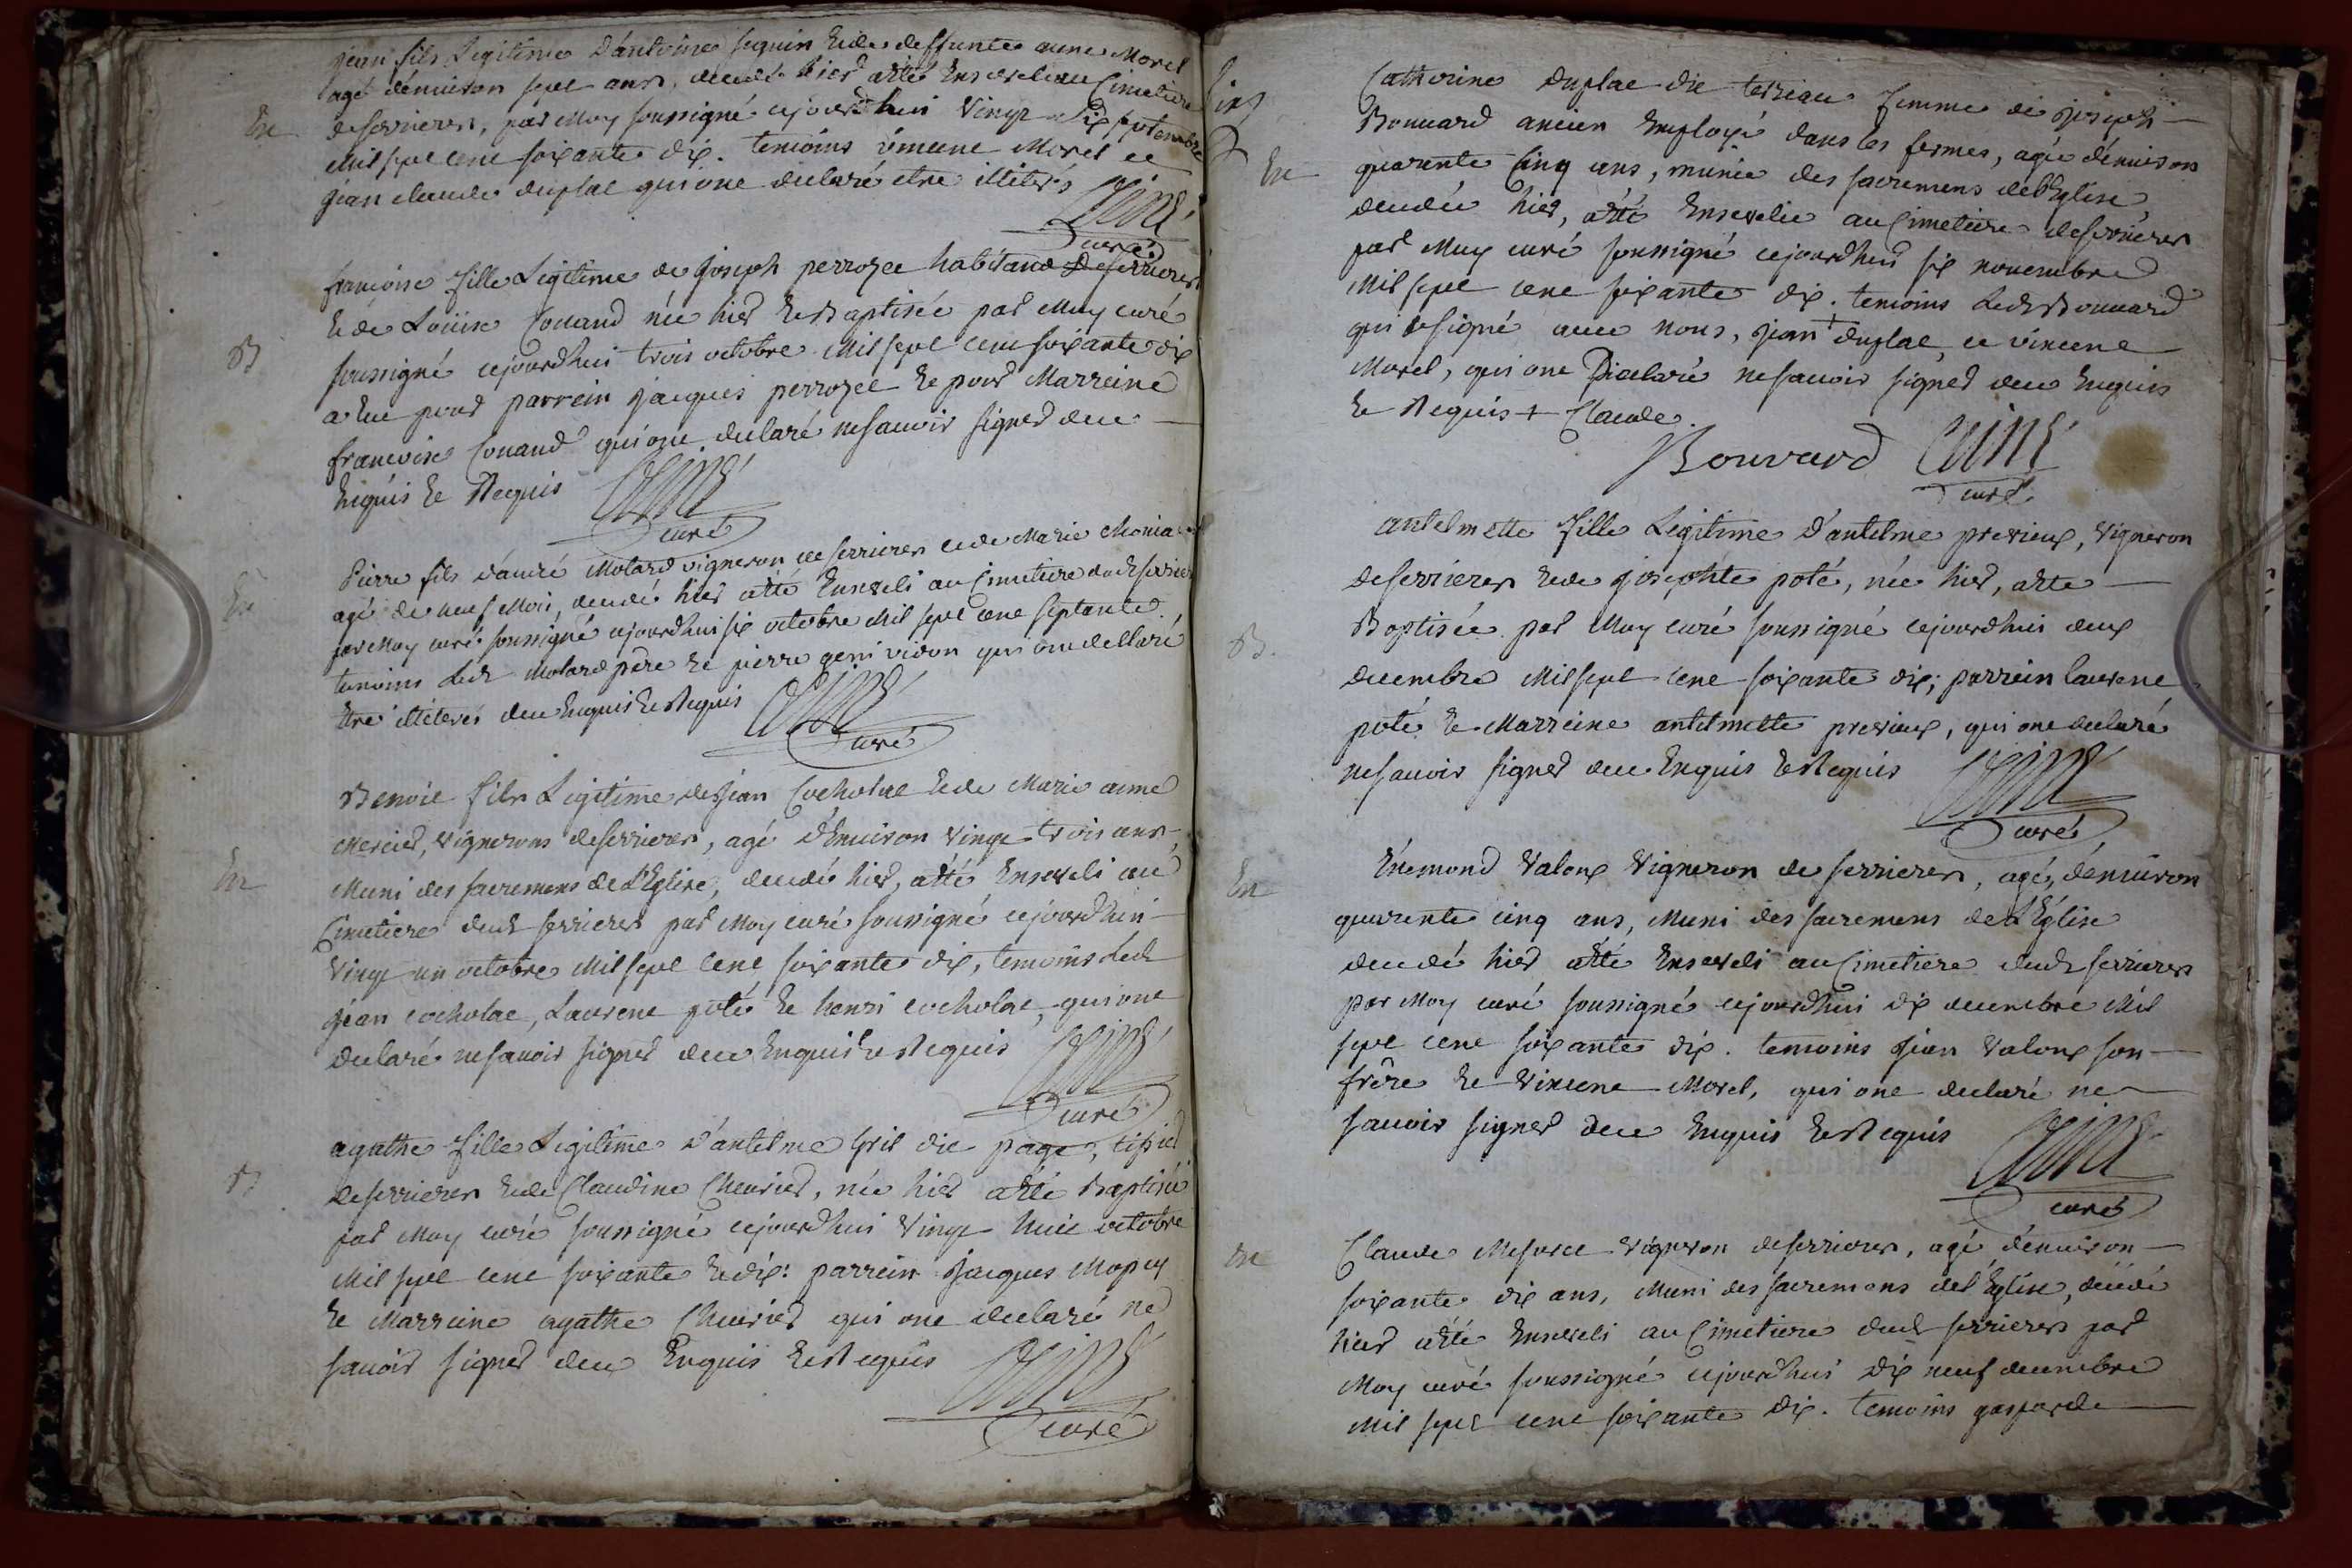 jean fils Legitime d'antoine seguin & de deffunte anne Morel
agé d'environ sept ans, decedé hier a été Enseveli au Cimetiere
En
de serrieres, par Moy soussigné cejourdhui Vingt Six septembre
Mil sept cent soixante dix. temoins vincent Morel et
jean claude duplat qui ont declaré etre illiterés
curé
francoise fille Legitime de joseph perrozet habitant de serrieres
& de Loüise Couand née hier & Baptisée par Moy curé
B
soussigné cejourdhui trois octobre Mil sept cent soixante dix
a Eue pour parrein jacques perrozet & pour Marreine
francoise Couand qui ont declaré ne savoir signer dece
Enquis & Requis
curé
Pierre fils d'andré Molard vigneron de serrieres et de Marie
En
agé de neuf Mois, decedé hier a été Enseveli au Cimetiere dud serrieres
par Moy curé soussigné cejourdhui six octobre Mil sept cent septante
temoins Led Molard père & pierre genividon qui ont declaré
être illéterés dece Enquis & Requis
curé
Benoit fils Legitime de jean Cochotat & de Marie anne
Mercier, vignerons de serrieres, agé d'Environ vingt trois ans,
En
Muni des sacremens de L'Eglise, decedé hier, a été Enseveli au
Cimetiere dud serrieres par Moy curé soussigné cejourdhui
Vingt un octobre Mil sept cent soixante dix, temoins Led
jean cochotat, Laurent poté & henri cochotat, qui ont
declaré ne savoir signer dece Enquis & Requis
curé
agathe fille Legitime d'antelme gris dit page, tissier
B
de serrieres & de Claudine Cheurier, née hier a été Baptisée
par Moy curé soussigné cejourdhui Vingt huit octobre
Mil sept cent soixante & dix: parrein jacques
& Marreine agathe Cheurier qui ont declaré ne
savoir signer dece Enquis & Requis
curé
Catherine duplat dit femme de joseph
Bouvard ancien Employé dans les fermes, agée d'environ
En
quarente Cinq ans, munie des sacremens de l'Eglise,
decedée hier, a été Ensevelie au Cimetiere de serrieres
par Moy curé soussigné cejourdhui six novembre
Mil sept cent soixante dix. temoins Led Bouvard
qui a signé avec nous, jean + duplat, et vincent
Morel, qui ont Declaré ne savoir signer dece Enquis
& Requis + Claude.
Bouvard
curé
antelmette fille Legitime d'antelme previeux, Vigneron
de serrieres & de josephte poté, née hier, a été
B.
Baptisée par Moy curé soussigné cejourdhui deux
decembre Mil sept cent soixante dix; parrein laurent
poté & Marreine antelmette previeux, qui ont declaré
ne savoir signer dece Enquis & Requis
curé
En
Enemond Valoux Vigneron de serrieres, agé, d'environ
quarente cinq ans, Muni des sacremens de L'Eglise
decedé hier a été Enseveli au Cimetiere dud serrieres
par Moy curé soussigné cejourdhui dix decembre Mil
sept cent soixante dix. temoins jean Valoux son
frère & Vincent Morel, qui ont declaré ne
savoir signer dece Enquis & Requis
curé
En
Claude Vigneron de serrieres, agé d'environ
soixante dix ans, Muni des sacremens de l'Eglise, decedé
hier a été Enseveli au Cimetiere dud serrieres par
Moy curé soussigné cejourdhui dix neuf decembre
Mil sept cent soixante dix. temoins gasparde